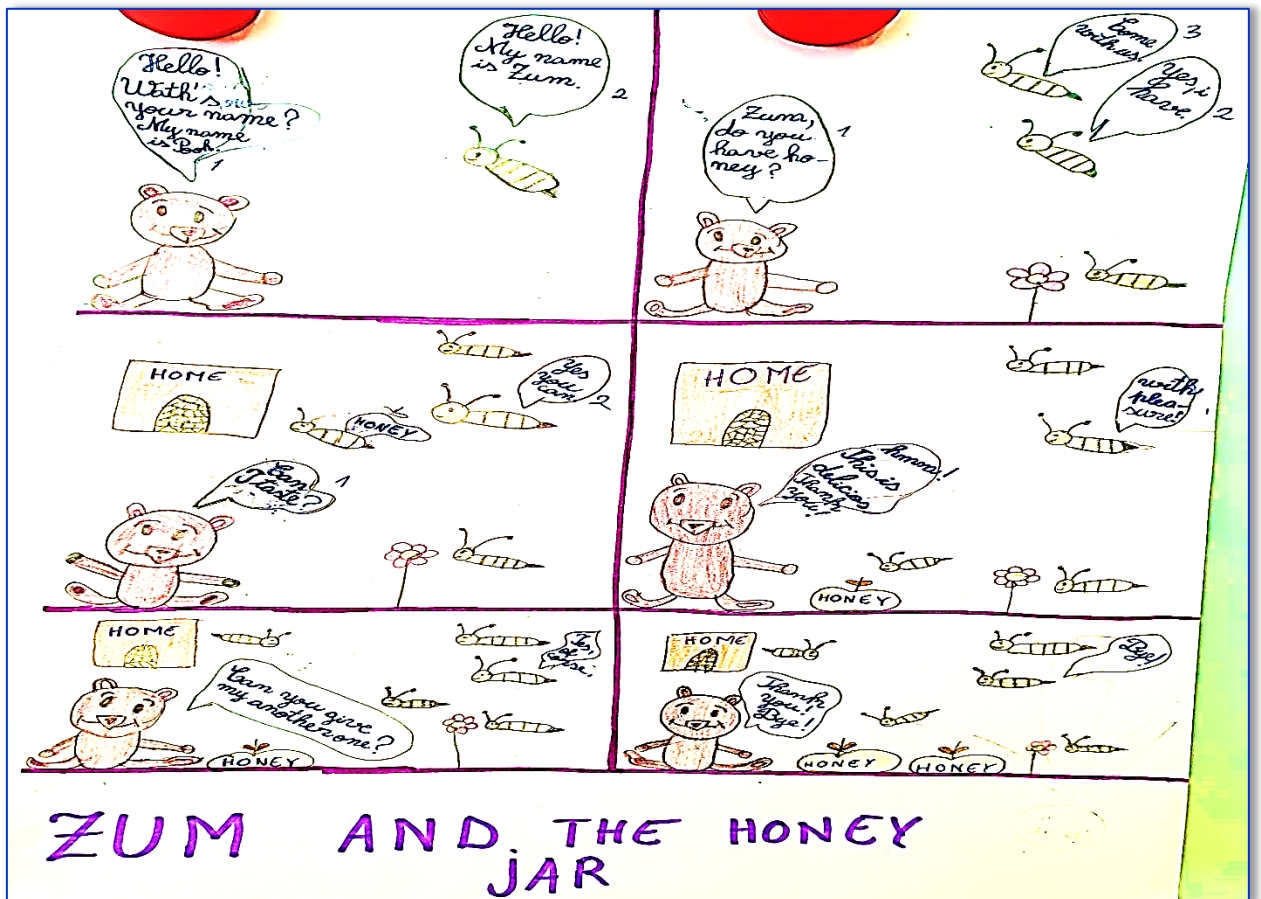 Hello!
Wath's
your name?
My name
is Pooh.
1
Hello!
My name
is Zum.
2
Zum,
do you
have ho-
ney?
1
Yes, i
have.
2
Come
with us!
3
HOME
HONEY
Can
I taste?
1
Yes
you
can
2
HOME
hmm!
This is
delicios
Thank
you!
with
plea-
sure!
HONEY
HOME
Can you give
my another one?
Yes,
of
corse!
HONEY
HOME
Thank
you!
Bye!
Bye!
HONEY
HONEY
ZUM AND THE HONEY
JAR